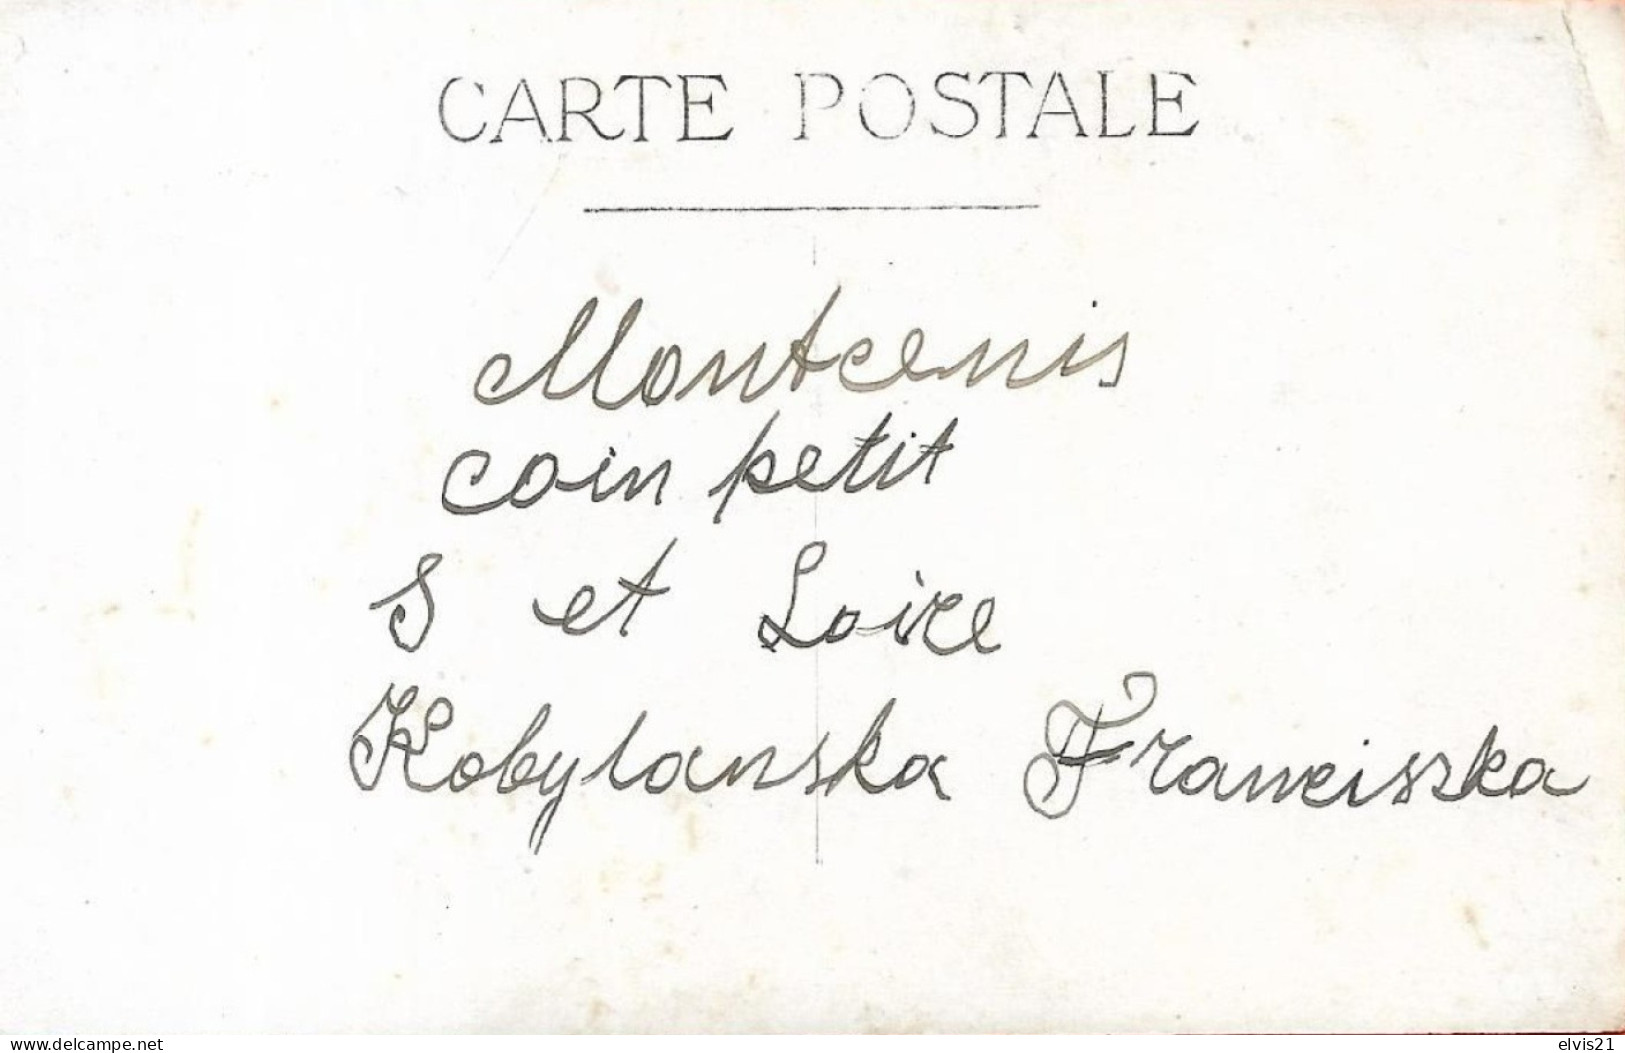 CARTE POSTALE
Montcenis
coin petit
S et Loire
Kobylanska Franciszka
www.delcampe.net
elvis21